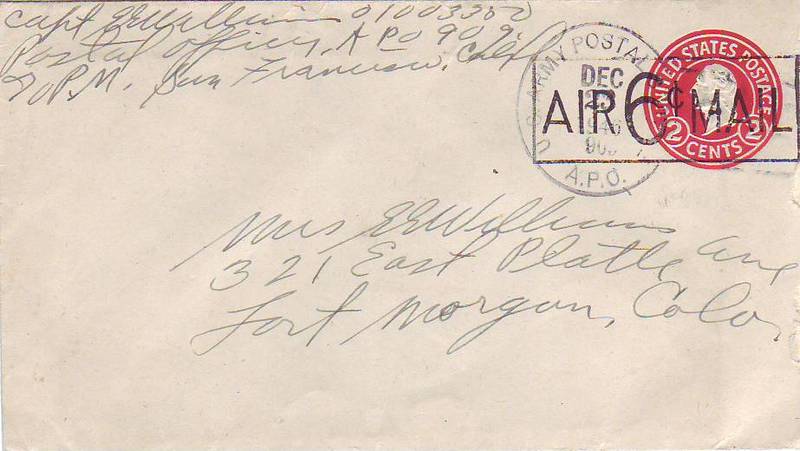 Capt EEWilliams 01003350
Postal Officer, APO 909
c/o P.M. San Francisco, Calif
U.S. ARMY POSTAL
DEC
1946
909
A.P.O.
AIR 6¢ MAIL
UNITED STATES POSTAGE
2 CENTS 2
Mrs EEWilliams
321 East Platte Ave
Fort Morgan, Colo,